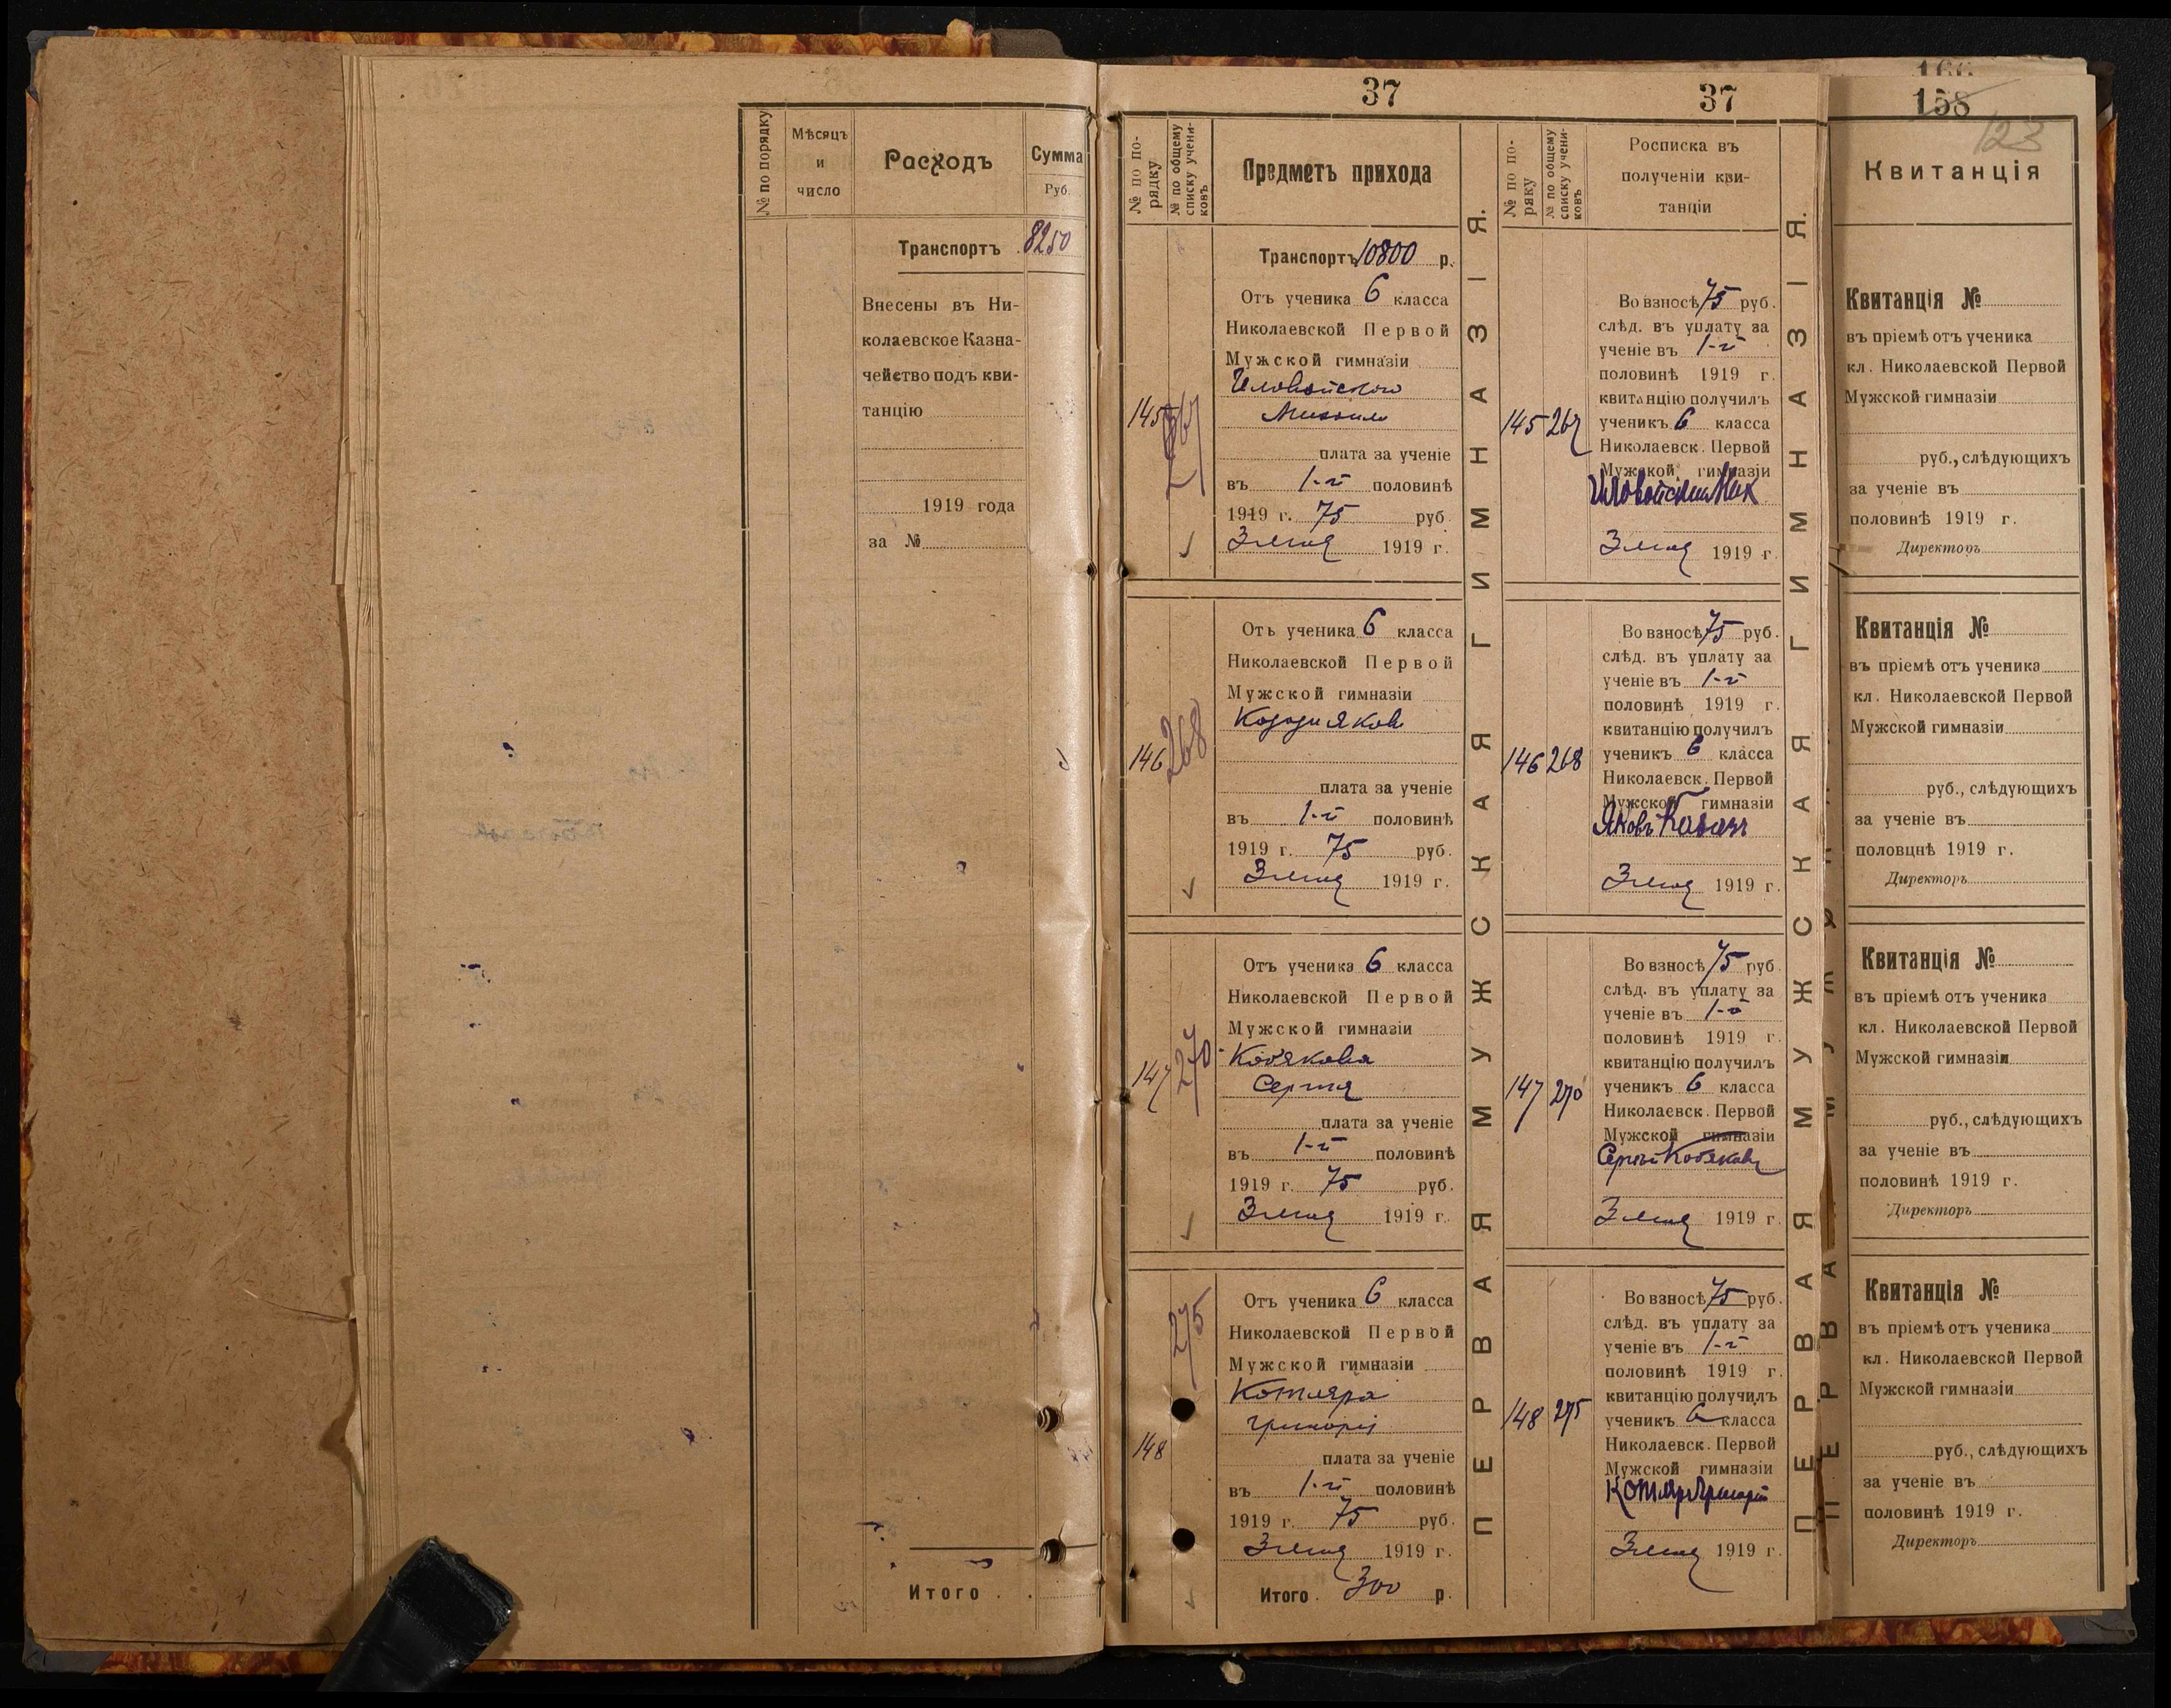 № по порядку
Мѣсяцъ
и
число
Расходъ
Сумма
Руб.
Транспортъ 8250
Внесены въ Ни-
колаевское Казна-
чейство подъ кви-
танцію
1919 года
за №
Итого
37
№ по по-
рядку
№ по общему
списку учени-
ковъ
Предметъ прихода
Транспортъ 10800 р.
145
267
Отъ ученика 6 класса
Николаевской Первой
Мужской гимназіи
Иловайского
плата за ученіе
въ 1-й половинѣ
1919 г. 75 руб
3 1919 г.
146
268
Отъ ученика 6 класса
Николаевской Первой
Мужской гимназіи
плата за ученіе
въ 1-й половинѣ
1919 г. 75 руб.
3 1919 г.
147
270
Отъ ученика 6 класса
Николаевской Первой
Мужской гимназіи
Кобякова
Сергѣя
плата за ученіе
въ 1-й половинѣ
1919 г. 75 руб.
3 1919 г.
148
275
Отъ ученика 6 класса
Николаевской Первой
Мужской гимназіи
Котляра
Григорія
плата за ученіе
въ 1-й половинѣ
1919 г. 75 руб.
3 1919 г.
Итого 300 р.
ПЕРВАЯ МУЖСКАЯ ГИМНАЗІЯ.
37
№ по по-
ряку
№ по общему
списку учени-
ковъ
Росписка въ
полученіи кви-
танціи
145 267
Во взносѣ 75 руб.
слѣд. въ уплату за
ученіе въ 1-й
половинѣ 1919 г.
квитанцію получилъ
ученикъ 6 класса
Николаевск. Первой
Мужской гимназіи
Иловайскій Мих
3 1919 г.
146 268
Во взносѣ 75 руб.
слѣд. въ уплату за
ученіе въ 1-й
половинѣ 1919 г.
квитанцію получилъ
ученикъ 6 класса
Николаевск. Первой
Мужской гимназіи
Яковъ
3 1919 г.
147 270
Во взносѣ 75 руб
слѣд. въ уплату за
ученіе въ 1-й
половинѣ 1919 г.
квитанцію получилъ
ученикъ 6 класса
Николаевск. Первой
Мужской гимназіи
Сергѣй Кобяковъ
3 1919 г.
148 275
Во взносѣ 75 руб.
слѣд. въ уплату за
ученіе въ 1-й
половинѣ 1919 г.
квитанцію получилъ
ученикъ 6 класса
Николаевск. Первой
Мужской гимназіи
Котляр Григорій
3 1919 г.
ПЕРВАЯ МУЖСКАЯ ГИМНАЗІЯ.
158
123
Квитанція
Квитанція №
въ пріемѣ отъ ученика
кл. Николаевской Первой
Мужской гимназіи
руб., слѣдующихъ
за ученіе въ
половинѣ 1919 г.
Директоръ
Квитанція №
въ пріемѣ отъ ученика
кл. Николаевской Первой
Мужской гимназіи
руб., слѣдующихъ
за ученіе въ
половцнѣ 1919 г.
Директоръ
Квитанція №
въ пріемѣ отъ ученика
кл. Николаевской Первой
Мужской гимназіи
руб., слѣдующихъ
за ученіе въ
половинѣ 1919 г.
Директоръ
Квитанція №
въ пріемѣ отъ ученика
кл. Николаевской Первой
Мужской гимназіи
руб., слѣдующихъ
за ученіе въ
половинѣ 1919 г.
Директоръ